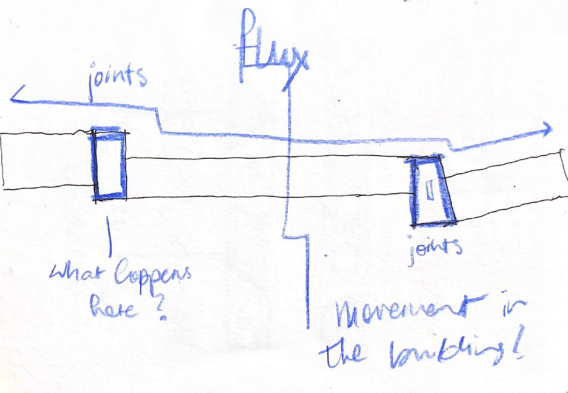 flux
joints
joints
what happens
here?
movement in
the building!